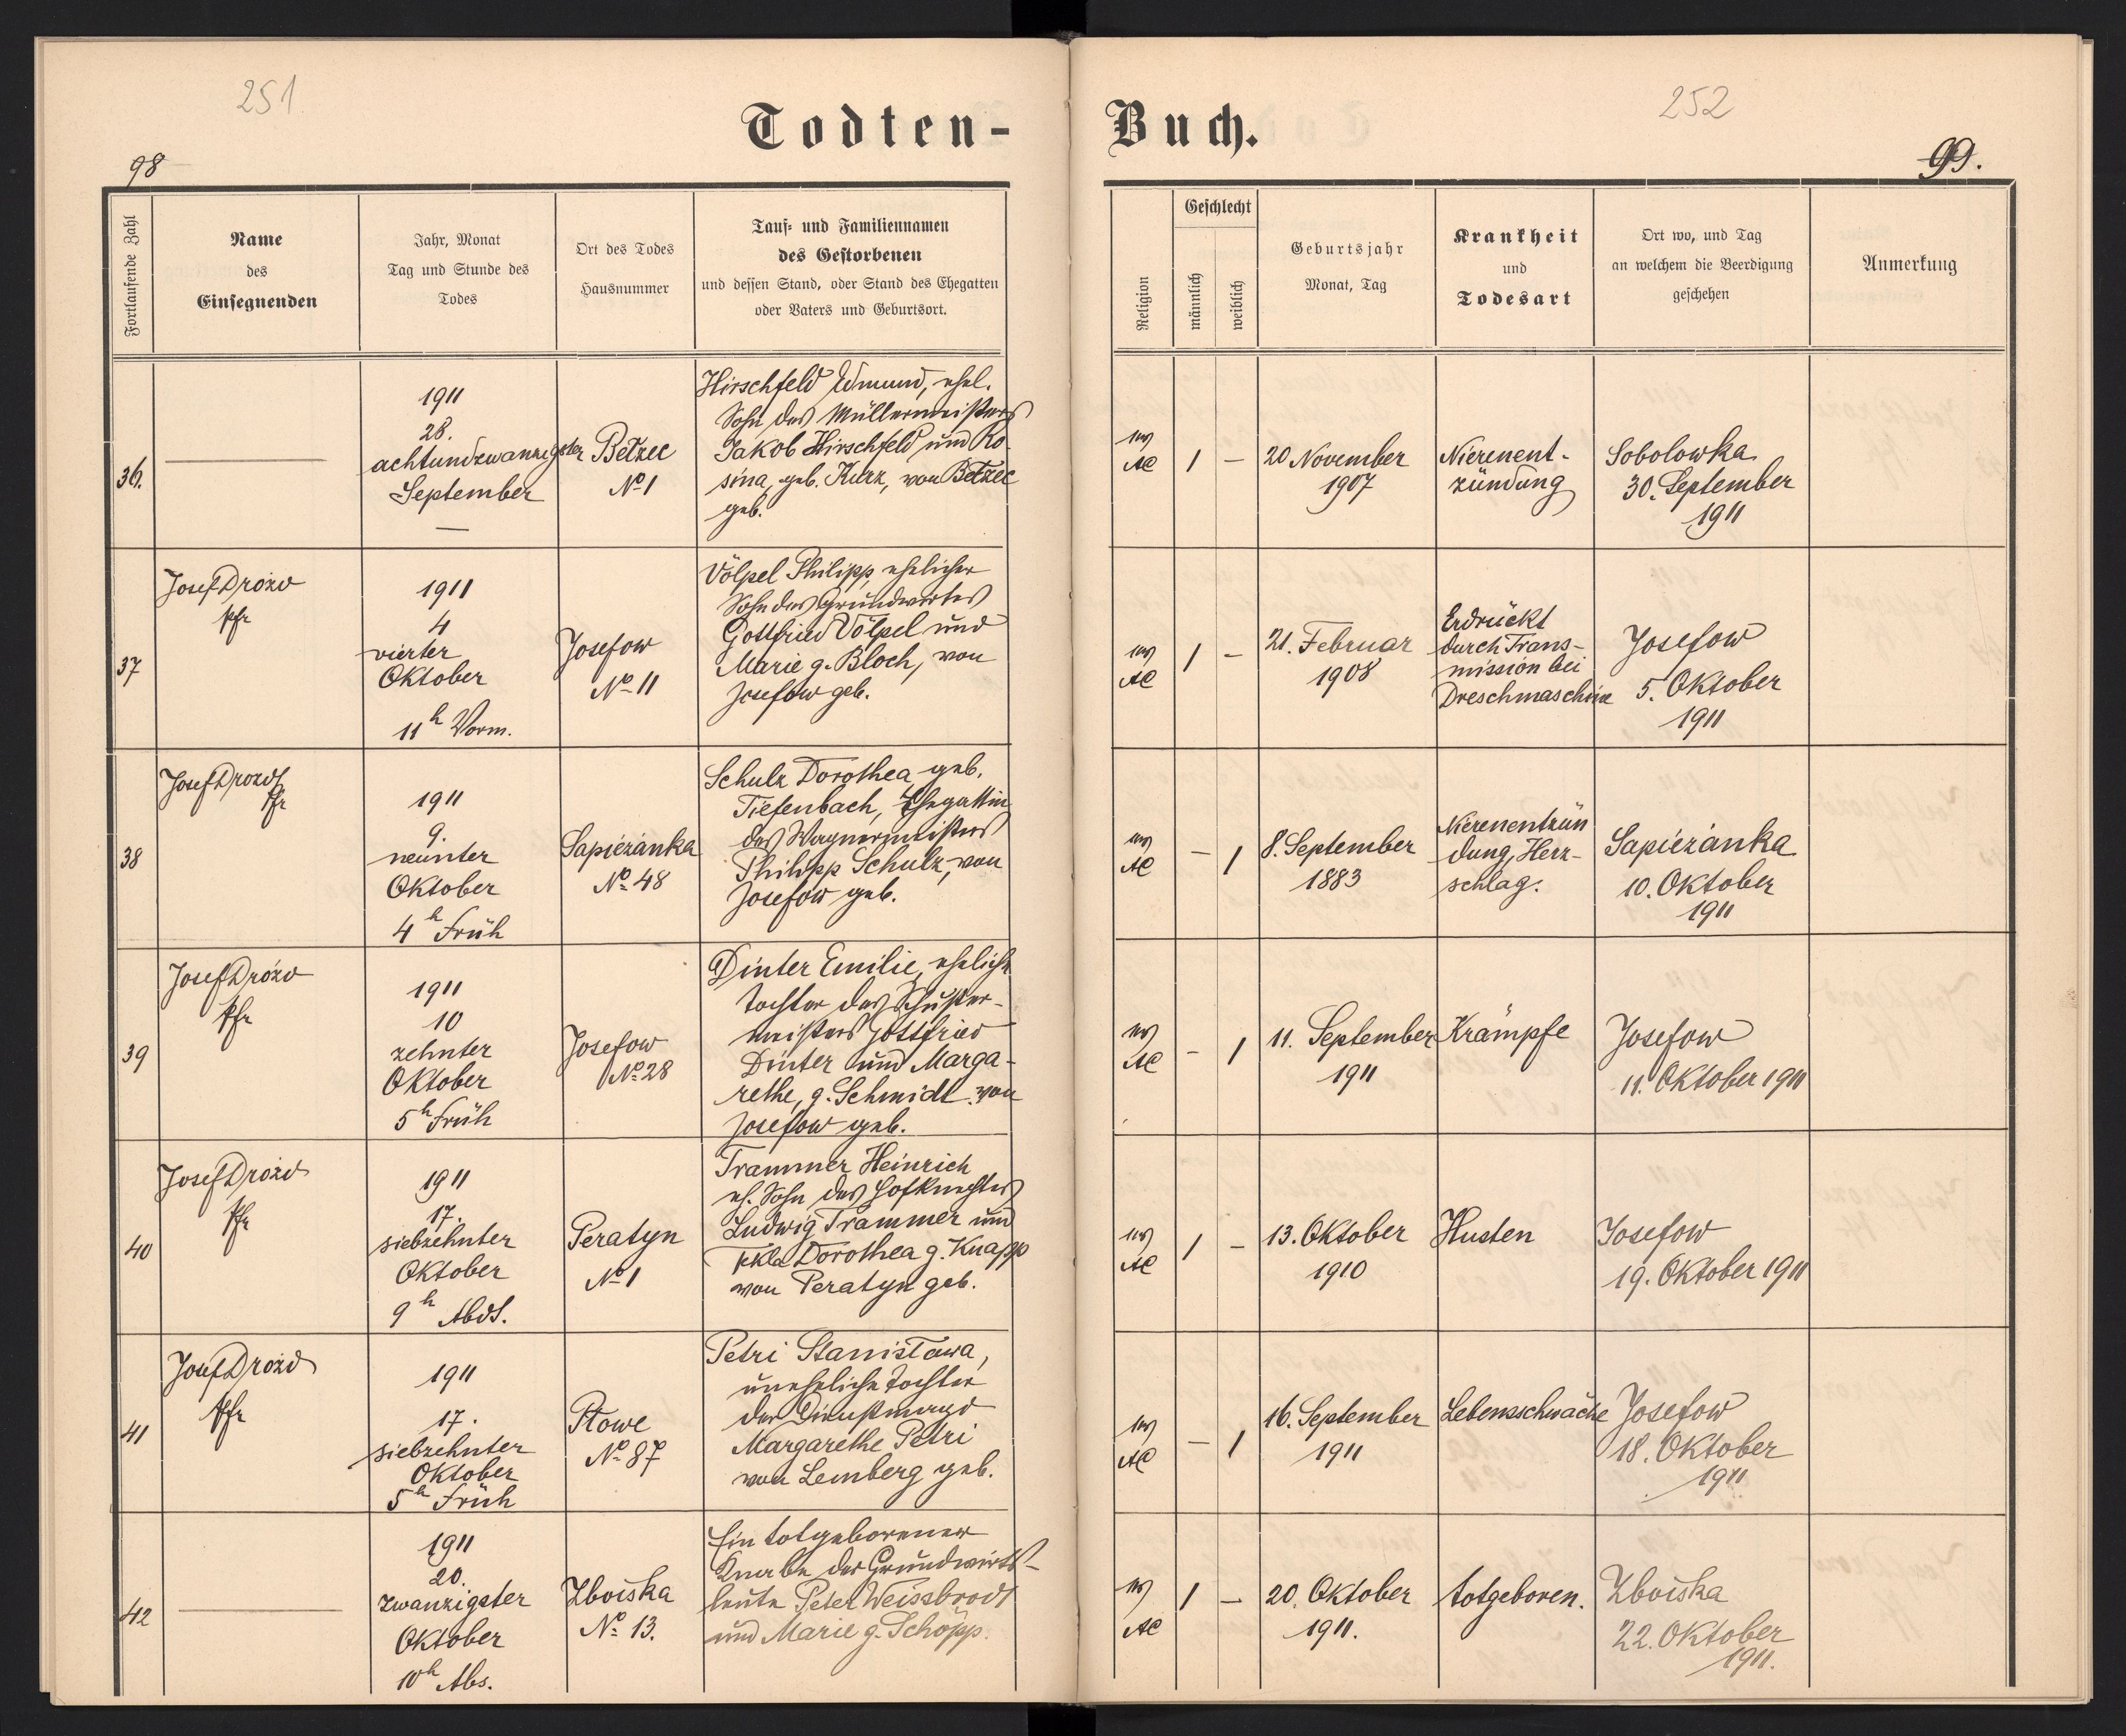 251
252
Todten-
Buch.
98
99.
Fortlaufende Zahl
Name
des
Einsegnenden
Jahr, Monat
Tag und Stunde des
Todes
Ort des Todes
Hausnummer
Tauf- und Familiennamen
des Gestorbenen
und dessen Stand, oder Stand des Ehegatten
oder Vaters und Geburtsort.
Religion
Geschlecht
männlich
weiblich
Geburtsjahr
Monat, Tag
Krankheit
und
Todesart
Ort wo, und Tag
an welchem die Beerdigung
geschehen
Anmerkung
36.
1911
28.
achtundzwanzigster
September
Bełzec
No 1
Hirschfeld Edmund, ehel.
Sohn des Müllermeisters
Jakob Hirschfeld und Ro-
sina, geb. Kurz, von Bełzec
geb.
AC
1
–
20 November
1907
Nierenent-
zündung
Sobolowka
30. September
1911
37
Josef Drozd
Pfr
1911
4
vierter
Oktober
11h Vorm.
Josefow
No 11
Völpel Philipp, ehelicher
Sohn des Grundwirtes
Gottfried Völpel und
Marie g. Bloch, von
Josefow geb.
AC
1
–
21. Februar
1908
Erdrückt
durch Trans-
mission bei
Dreschmaschine
Josefow
5. Oktober
1911
38
Josef Drozd
Pfr
1911
9.
neunter
Oktober
4h Früh
Sapiezanka
No 48
Schulz Dorothea geb.
Tiefenbach, Ehegattin
des Wagnermeisters
Philipp Schulz, von
Josefow geb.
AC
–
1
8. September
1883
Nierenentzün
dung, Herz-
schlag.
Sapiezanka
10. Oktober
1911
39
Josef Drozd
Pfr
1911
10
zehnter
Oktober
5h Früh
Josefow
No 28
Dinter Emilie, eheliche
Tochter des Schuster-
meisters Gottfried
Dinter und Marga-
rethe, g. Schmidt von
Josefow geb.
AC
–
1
11. September
1911
Krämpfe
Josefow
11. Oktober 1911
40
Josef Drozd
Pfr
1911
17.
siebzehnter
Oktober
9h Abds.
Peratyn
No 1
Trammer Heinrich
eh. Sohn des Hofknechtes
Ludwig Trammer und
Dorothea g. Knapp
von Peratyn geb.
AC
1
–
13. Oktober
1910
Husten
Josefow
19. Oktober 1911
41
Josef Drozd
Pfr
1911
17.
siebzehnter
Oktober
5h Früh
Płowe
No 87
Petri Stanisława,
uneheliche Tochter
der Dienstmagd
Margarethe Petri
von Lemberg geb.
AC
–
1
16. September
1911
Lebensschwäche
Josefow
18. Oktober
1911
42
1911
20.
zwanzigster
Oktober
10h Abs.
Zboiska
No 13.
Ein totgeborener
Knabe der Grundwirts-
leute Peter Weissbrodt
und Marie g. Schöpp.
AC
1
–
20. Oktober
1911.
totgeboren.
Zboiska
22. Oktober
1911.